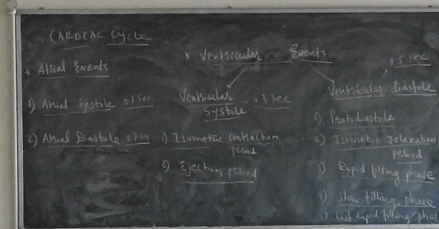 CARDIAC Cycle
* Atrial Events
1) Atrial systole 0.1 sec
2) Atrial Diastole 0.7 sec
* Ventricular Events
Ventricular systole - 0.3 sec
1) Isometric Contraction period
2) Ejection period
0.5 sec
Ventricular diastole
1) Protodiastole
2) Isometric relaxation period
3) Rapid filling phase
4) Slow filling phase
5) Last rapid filling phase